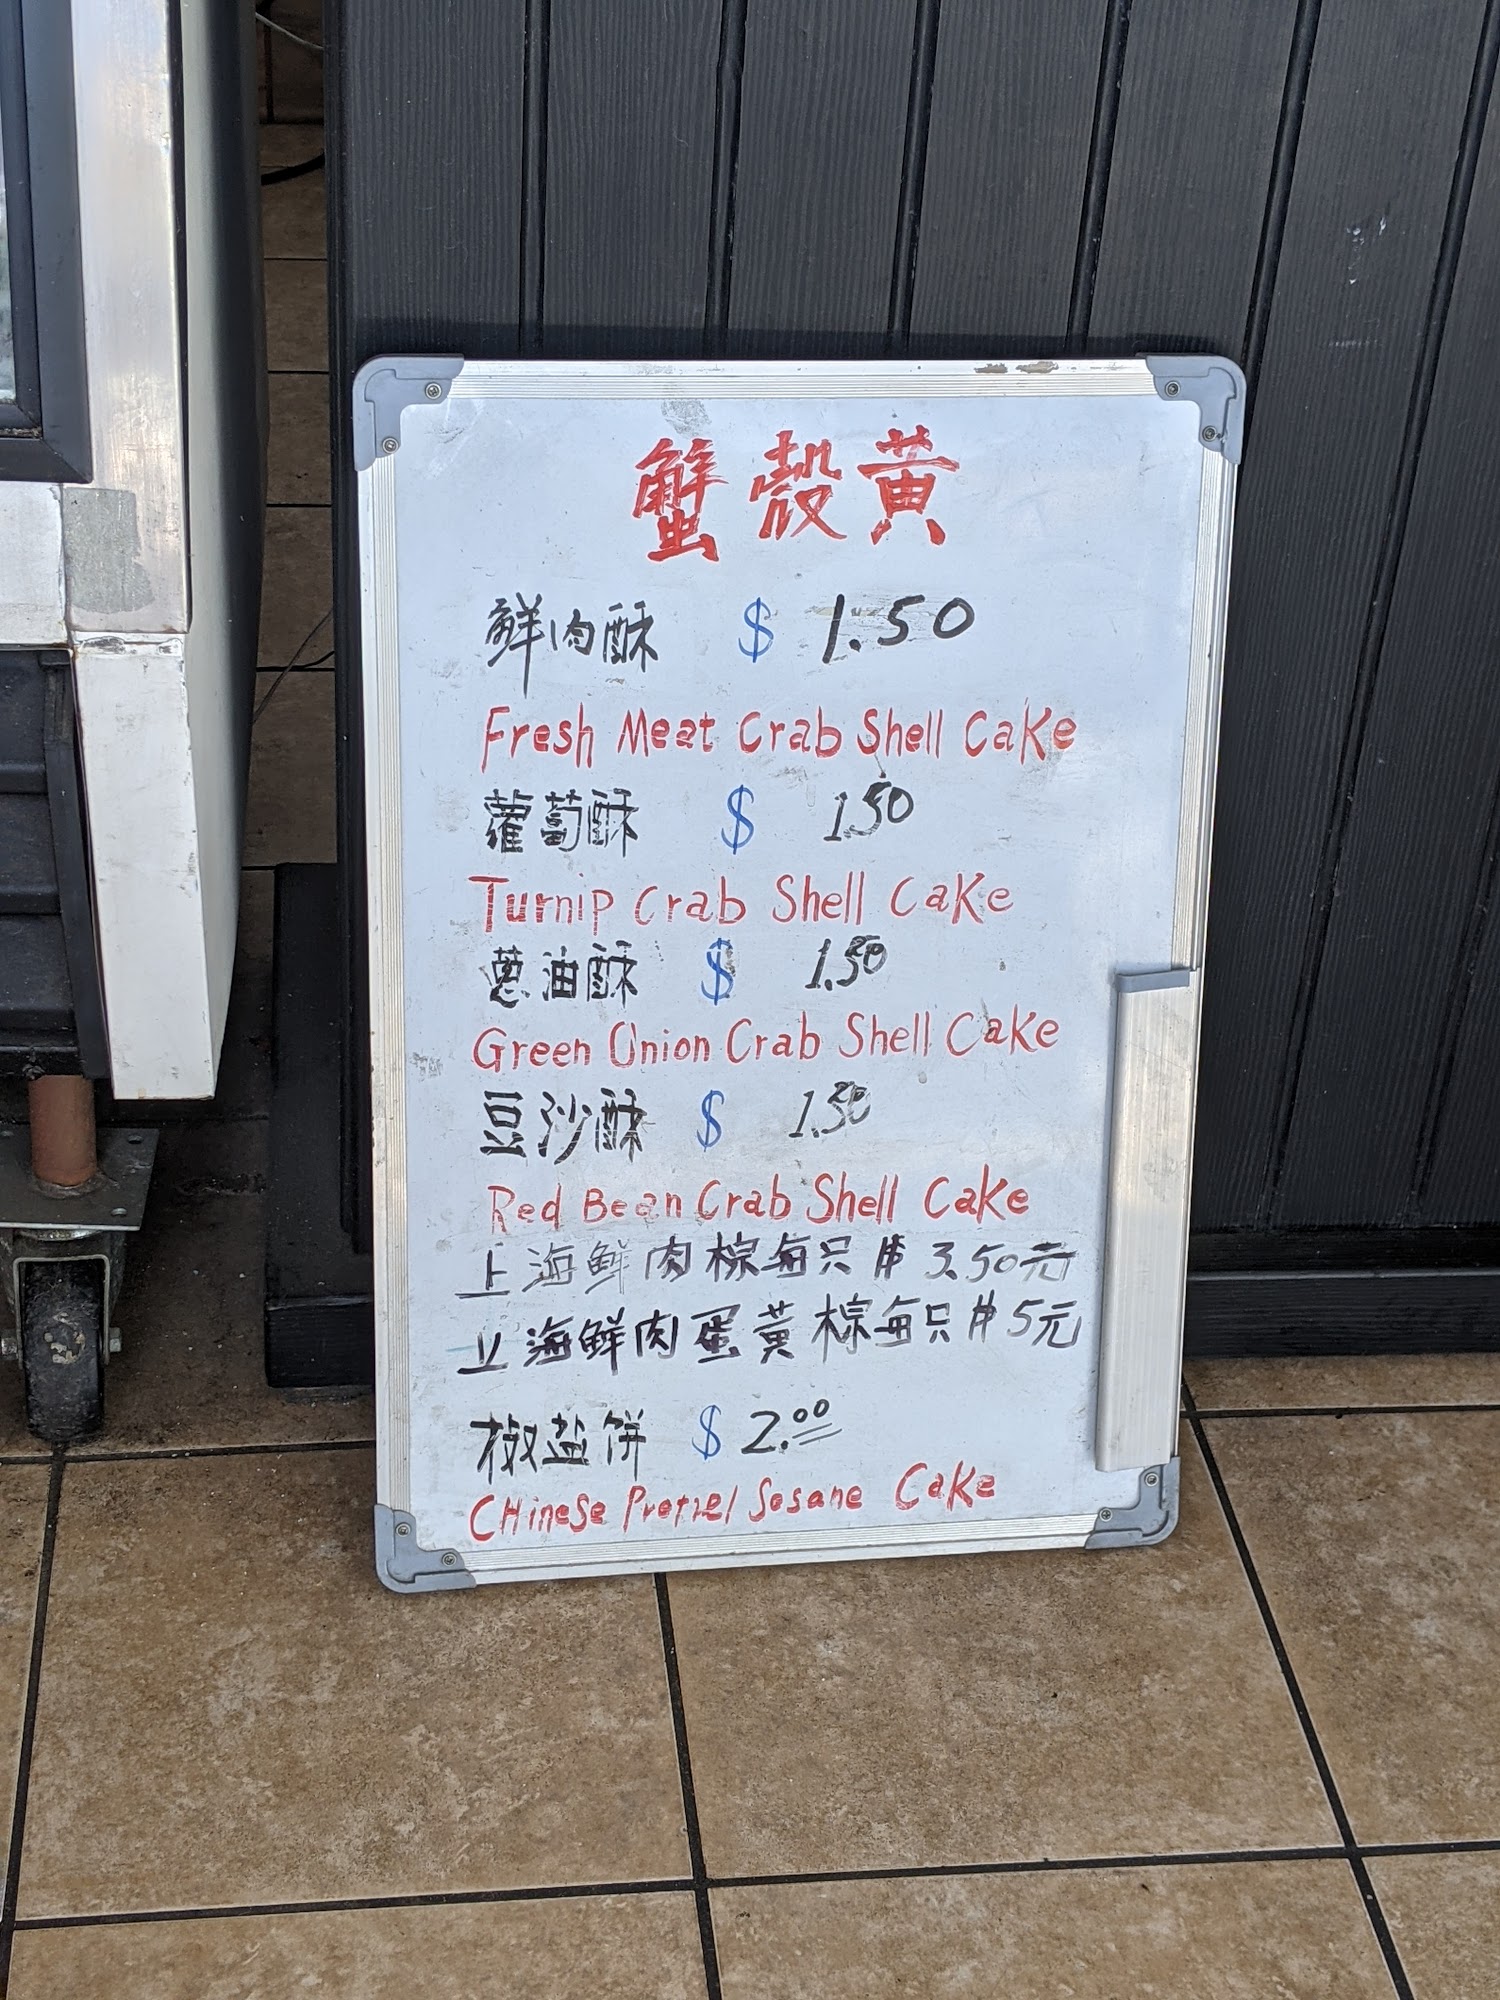 蟹殼黃
鮮肉酥 $ 1.50
Fresh Meat Crab Shell Cake
蘿蔔酥 $ 1.50
Turnip Crab Shell Cake
蔥油酥 $ 1.50
Green Onion Crab Shell Cake
豆沙酥 $ 1.50
Red Bean Crab Shell Cake
上海鮮肉粽每只 $ 3.50元
上海鮮肉蛋黃粽每只 $ 5元
椒盐餅 $ 2.00
CHinese Pretzel Sesame Cake